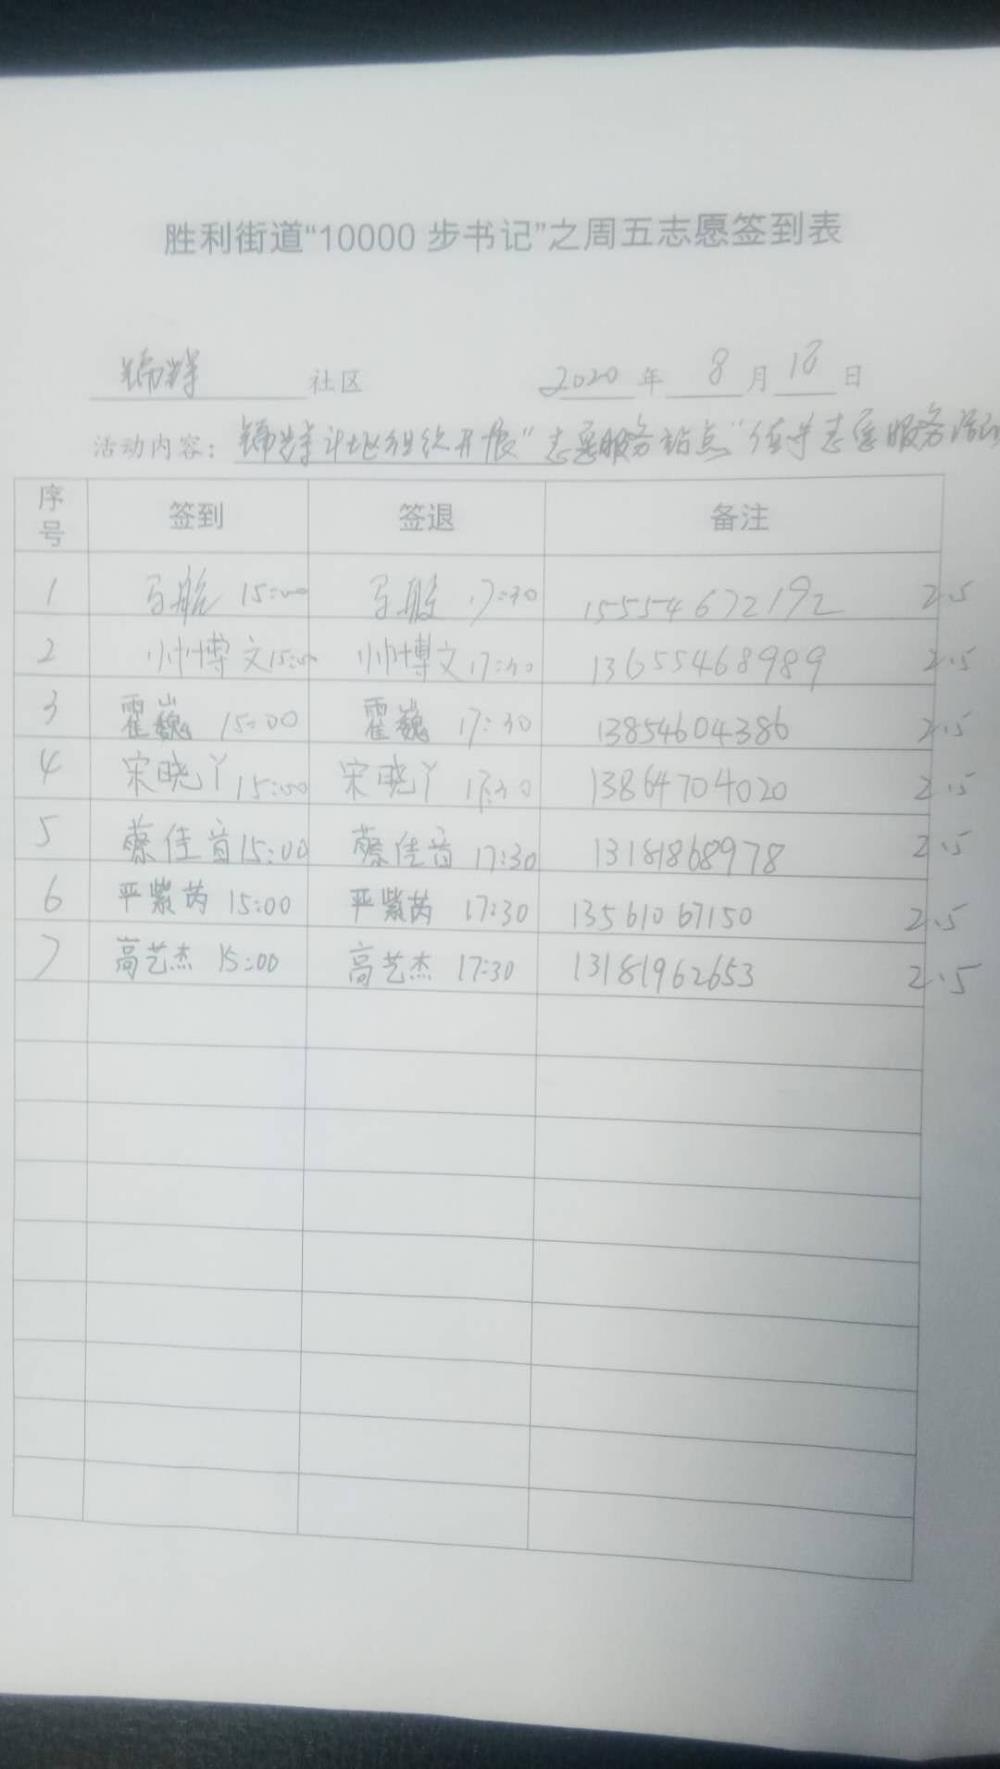 胜利街道“10000 步书记”之周五志愿签到表
锦辉 社区 2020 年 8 月 18 日
活动内容：锦辉社区组织开展“志愿服务站点”值守志愿服务活动
序号 签到 签退 备注
1 马航 15:00 马航 17:30 15554672192 2.5
2 帅博文 15:00 帅博文 17:30 13655468989 2.5
3 霍巍 15:00 霍巍 17:30 13854604386 2.5
4 宋晓丫 15:00 宋晓丫 17:30 13864704020 2.5
5 蔡佳音 15:00 蔡佳音 17:30 13181868978 2.5
6 严紫芮 15:00 严紫芮 17:30 13561067150 2.5
7 高艺杰 15:00 高艺杰 17:30 13181962653 2.5